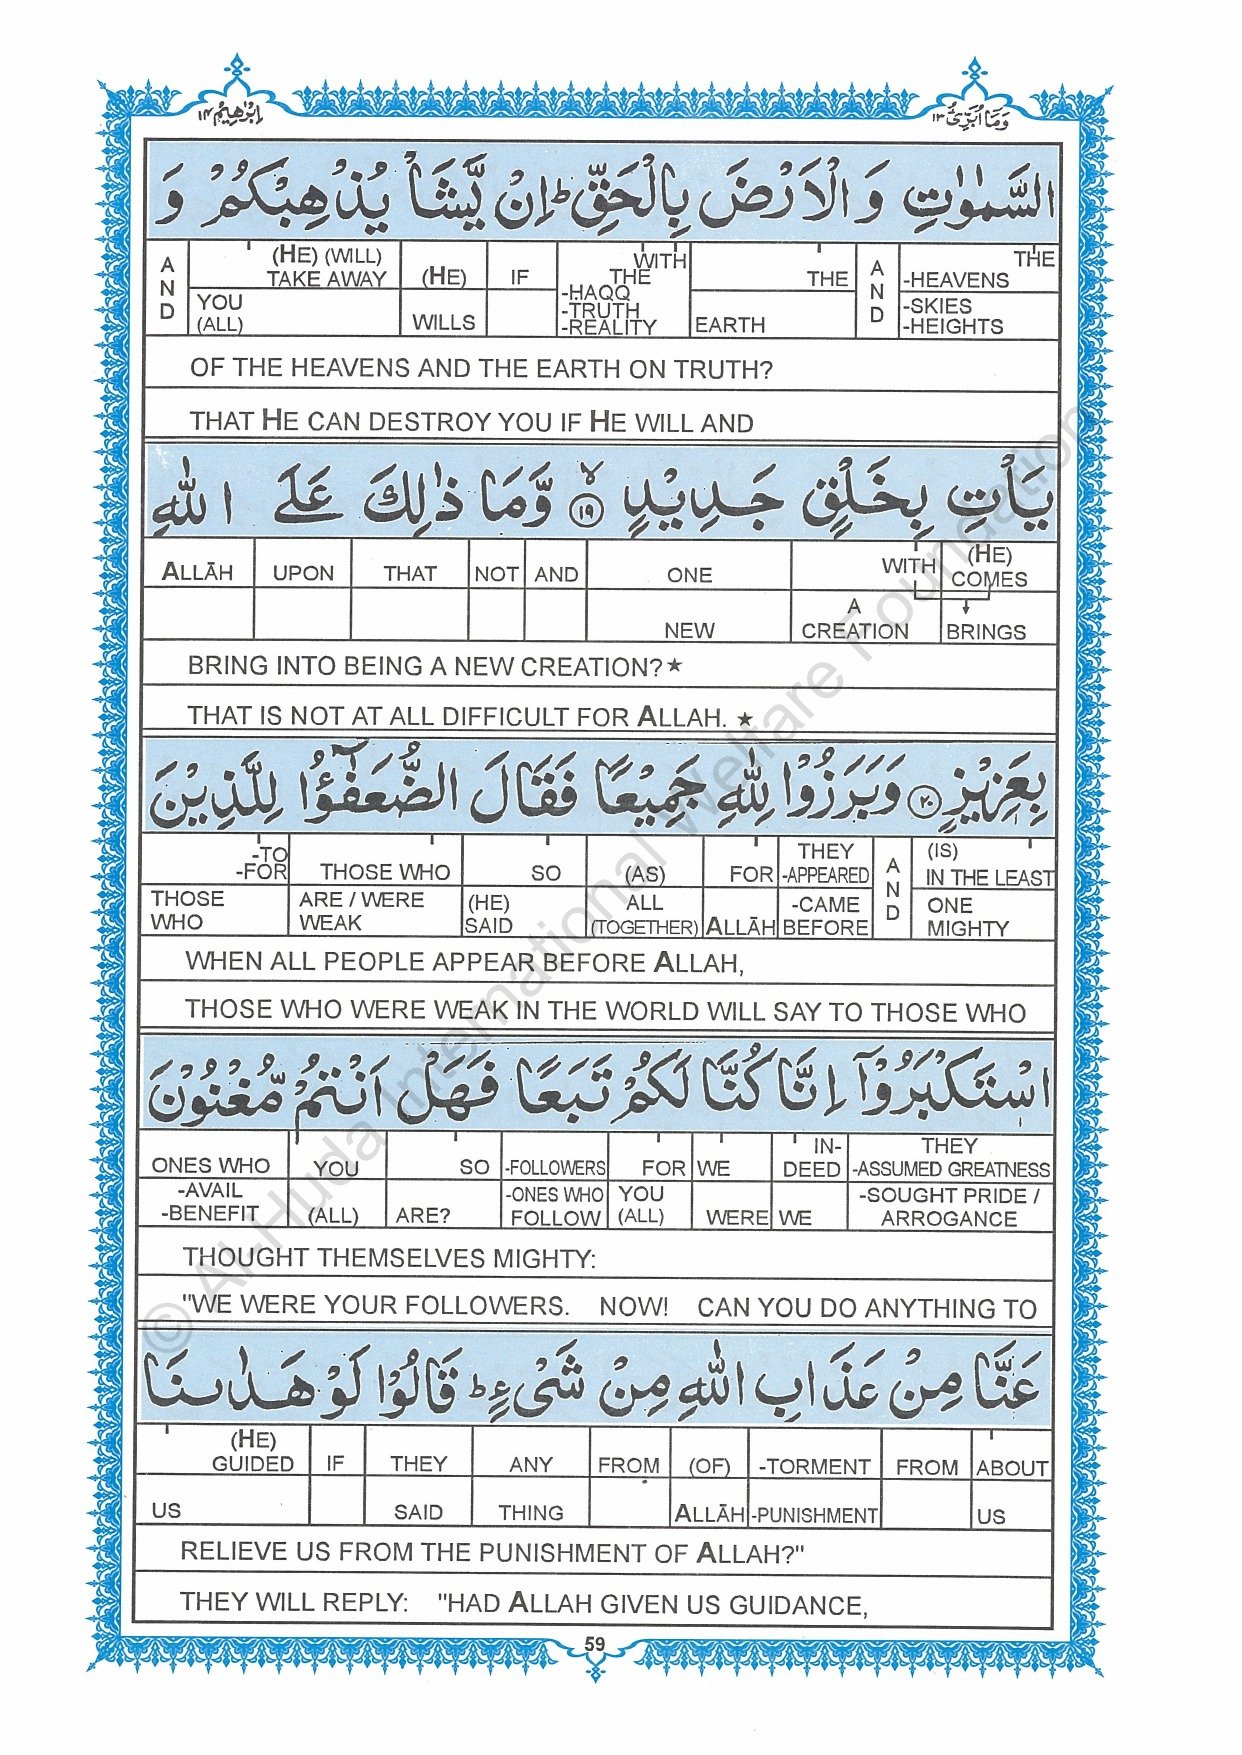 اِبْرٰهِيْمُ ١٤
وَمَا اُبَرِّئُ ١٣
السَّمٰوٰتِ وَ الْاَرْضَ بِالْحَقِّ ؕ اِنْ يَّشَاْ يُذْهِبْكُمْ وَ
AND | (HE) (WILL) TAKE AWAY | (HE) | IF | WITH THE | THE | AND | THE -HEAVENS
YOU (ALL) | WILLS | -HAQQ -TRUTH -REALITY | EARTH | -SKIES -HEIGHTS
OF THE HEAVENS AND THE EARTH ON TRUTH?
THAT HE CAN DESTROY YOU IF HE WILL AND
يَاْتِ بِخَلْقٍ جَدِيْدٍ ۙ ١٩ وَّمَا ذٰلِكَ عَلَى اللّٰهِ
ALLĀH | UPON | THAT | NOT | AND | ONE | WITH | (HE) COMES
NEW | A CREATION | BRINGS
BRING INTO BEING A NEW CREATION?★
THAT IS NOT AT ALL DIFFICULT FOR ALLAH. ★
بِعَزِيْزٍ ٢٠ وَبَرَزُوْا لِلّٰهِ جَمِيْعًا فَقَالَ الضُّعَفٰٓؤُا لِلَّذِيْنَ
-TO -FOR | THOSE WHO | SO | (AS) | FOR | THEY -APPEARED | AND | (IS) IN THE LEAST
THOSE WHO | ARE / WERE WEAK | (HE) SAID | ALL (TOGETHER) | ALLĀH | -CAME BEFORE | ONE MIGHTY
WHEN ALL PEOPLE APPEAR BEFORE ALLAH,
THOSE WHO WERE WEAK IN THE WORLD WILL SAY TO THOSE WHO
اسْتَكْبَرُوْٓا اِنَّا كُنَّا لَكُمْ تَبَعًا فَهَلْ اَنْتُمْ مُّغْنُوْنَ
ONES WHO | YOU | SO | -FOLLOWERS | FOR | WE | IN-DEED | THEY -ASSUMED GREATNESS
-AVAIL -BENEFIT | (ALL) | ARE? | -ONES WHO FOLLOW | YOU (ALL) | WERE | WE | -SOUGHT PRIDE / ARROGANCE
THOUGHT THEMSELVES MIGHTY:
"WE WERE YOUR FOLLOWERS. NOW! CAN YOU DO ANYTHING TO
عَنَّا مِنْ عَذَابِ اللّٰهِ مِنْ شَيْءٍ ؕ قَالُوْا لَوْ هَدٰىنَا
(HE) GUIDED | IF | THEY | ANY | FROM | (OF) | -TORMENT | FROM | ABOUT
US | SAID | THING | ALLĀH | -PUNISHMENT | US
RELIEVE US FROM THE PUNISHMENT OF ALLAH?"
THEY WILL REPLY: "HAD ALLAH GIVEN US GUIDANCE,
59
© Al-Huda International Welfare Foundation